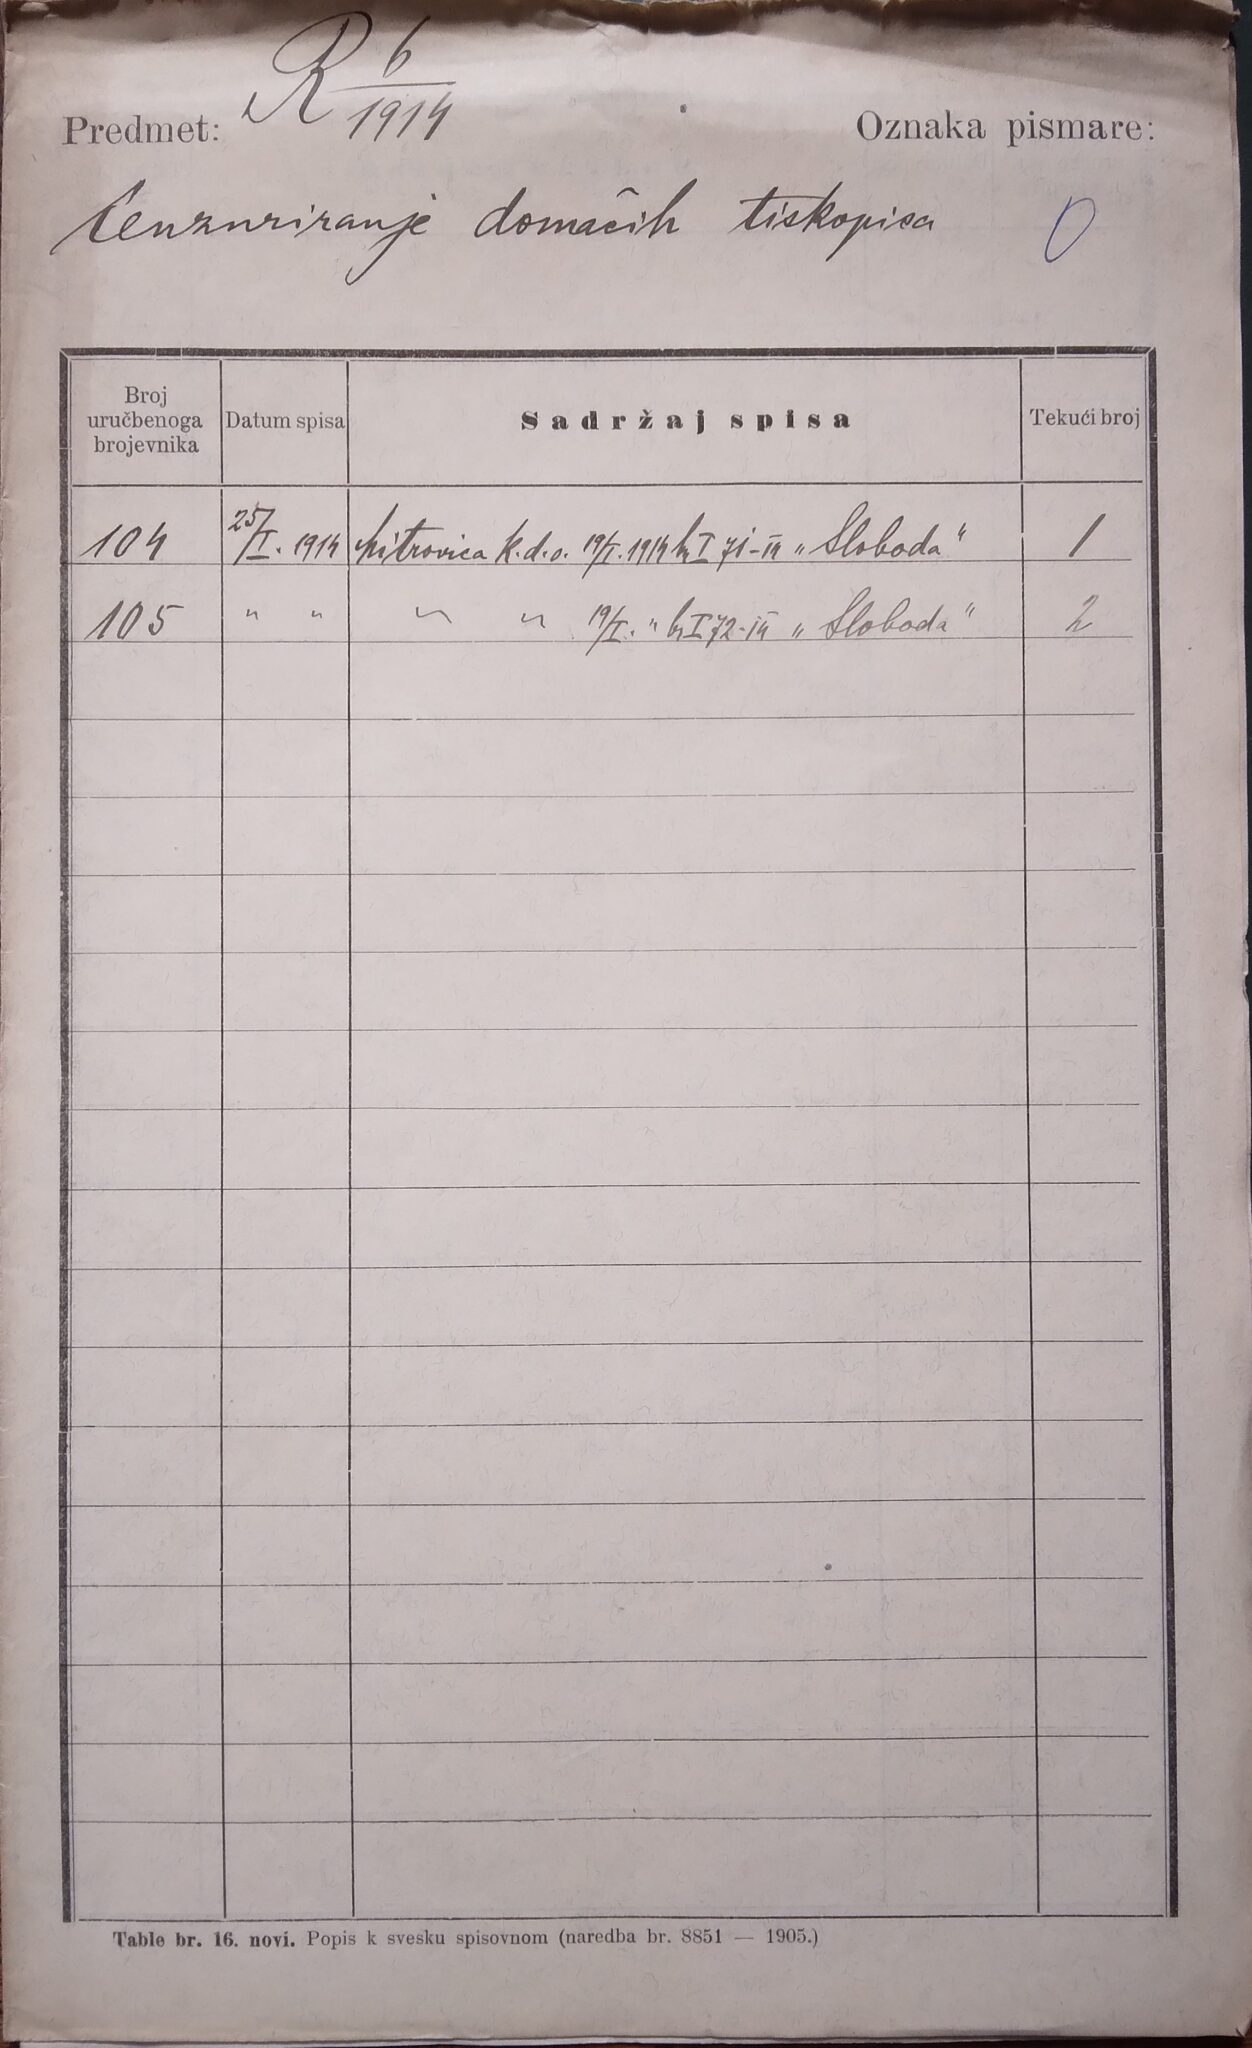 R 6/1914
Predmet: Oznaka pismare:
Cenzuriranje domaćih tiskopisa 0
Broj uručbenoga brojevnika Datum spisa Sadržaj spisa Tekući broj
104 25/I. 1914 Mitrovica k.d.o. 19/I. 1914 br I 71-14 „Sloboda“ 1
105 " " " " 19/I. " br I 72-14 „Sloboda“ 2
Table br. 16. novi. Popis k svesku spisovnom (naredba br. 8851 — 1905.)